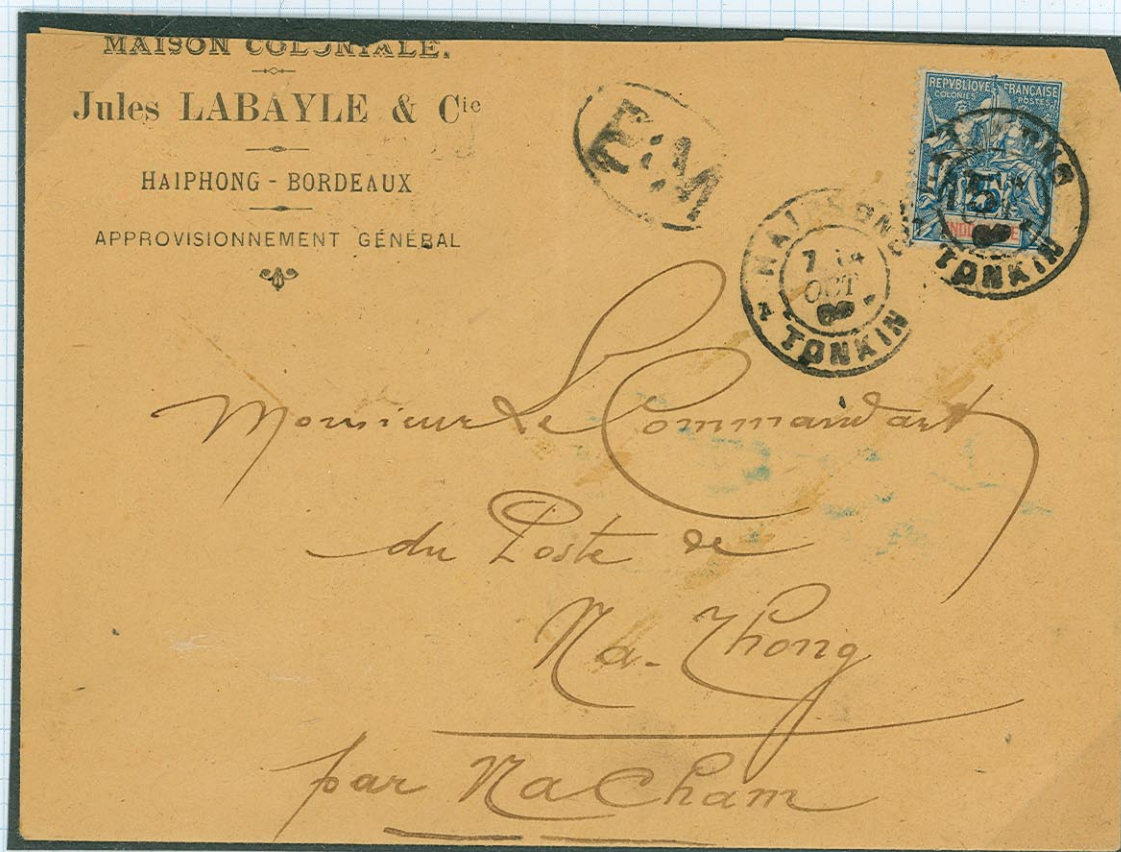 MAISON COLONIALE.
Jules LABAYLE & Cie
HAIPHONG - BORDEAUX
APPROVISIONNEMENT GÉNÉRAL
F.M
REPVBLIQVE FRANÇAISE
COLONIES POSTES
15
HAIPHONG
7 OCT
TONKIN
TONKIN
Monsieur Le Commandant
du Poste de
Na-Thong
par Na Cham